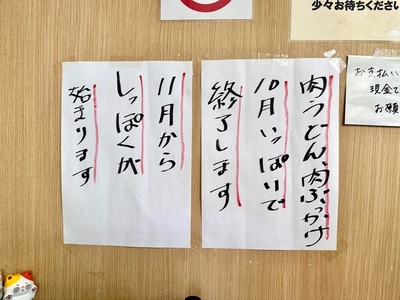 少々お待ちください
肉うどん、肉ぶっかけ
10月いっぱいで
終了します
11月から
しっぽくが
始まります
お支払い
現金で
お願